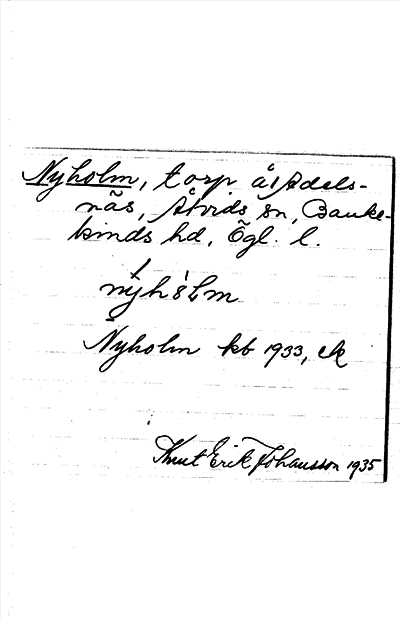 Nyholm, torp å Adels-
näs, Åtvids sn, Banke-
kinds hd, Ögl. l.
nyhólm
Nyholm kb 1933, ek
Knut Erik Johansson 1935